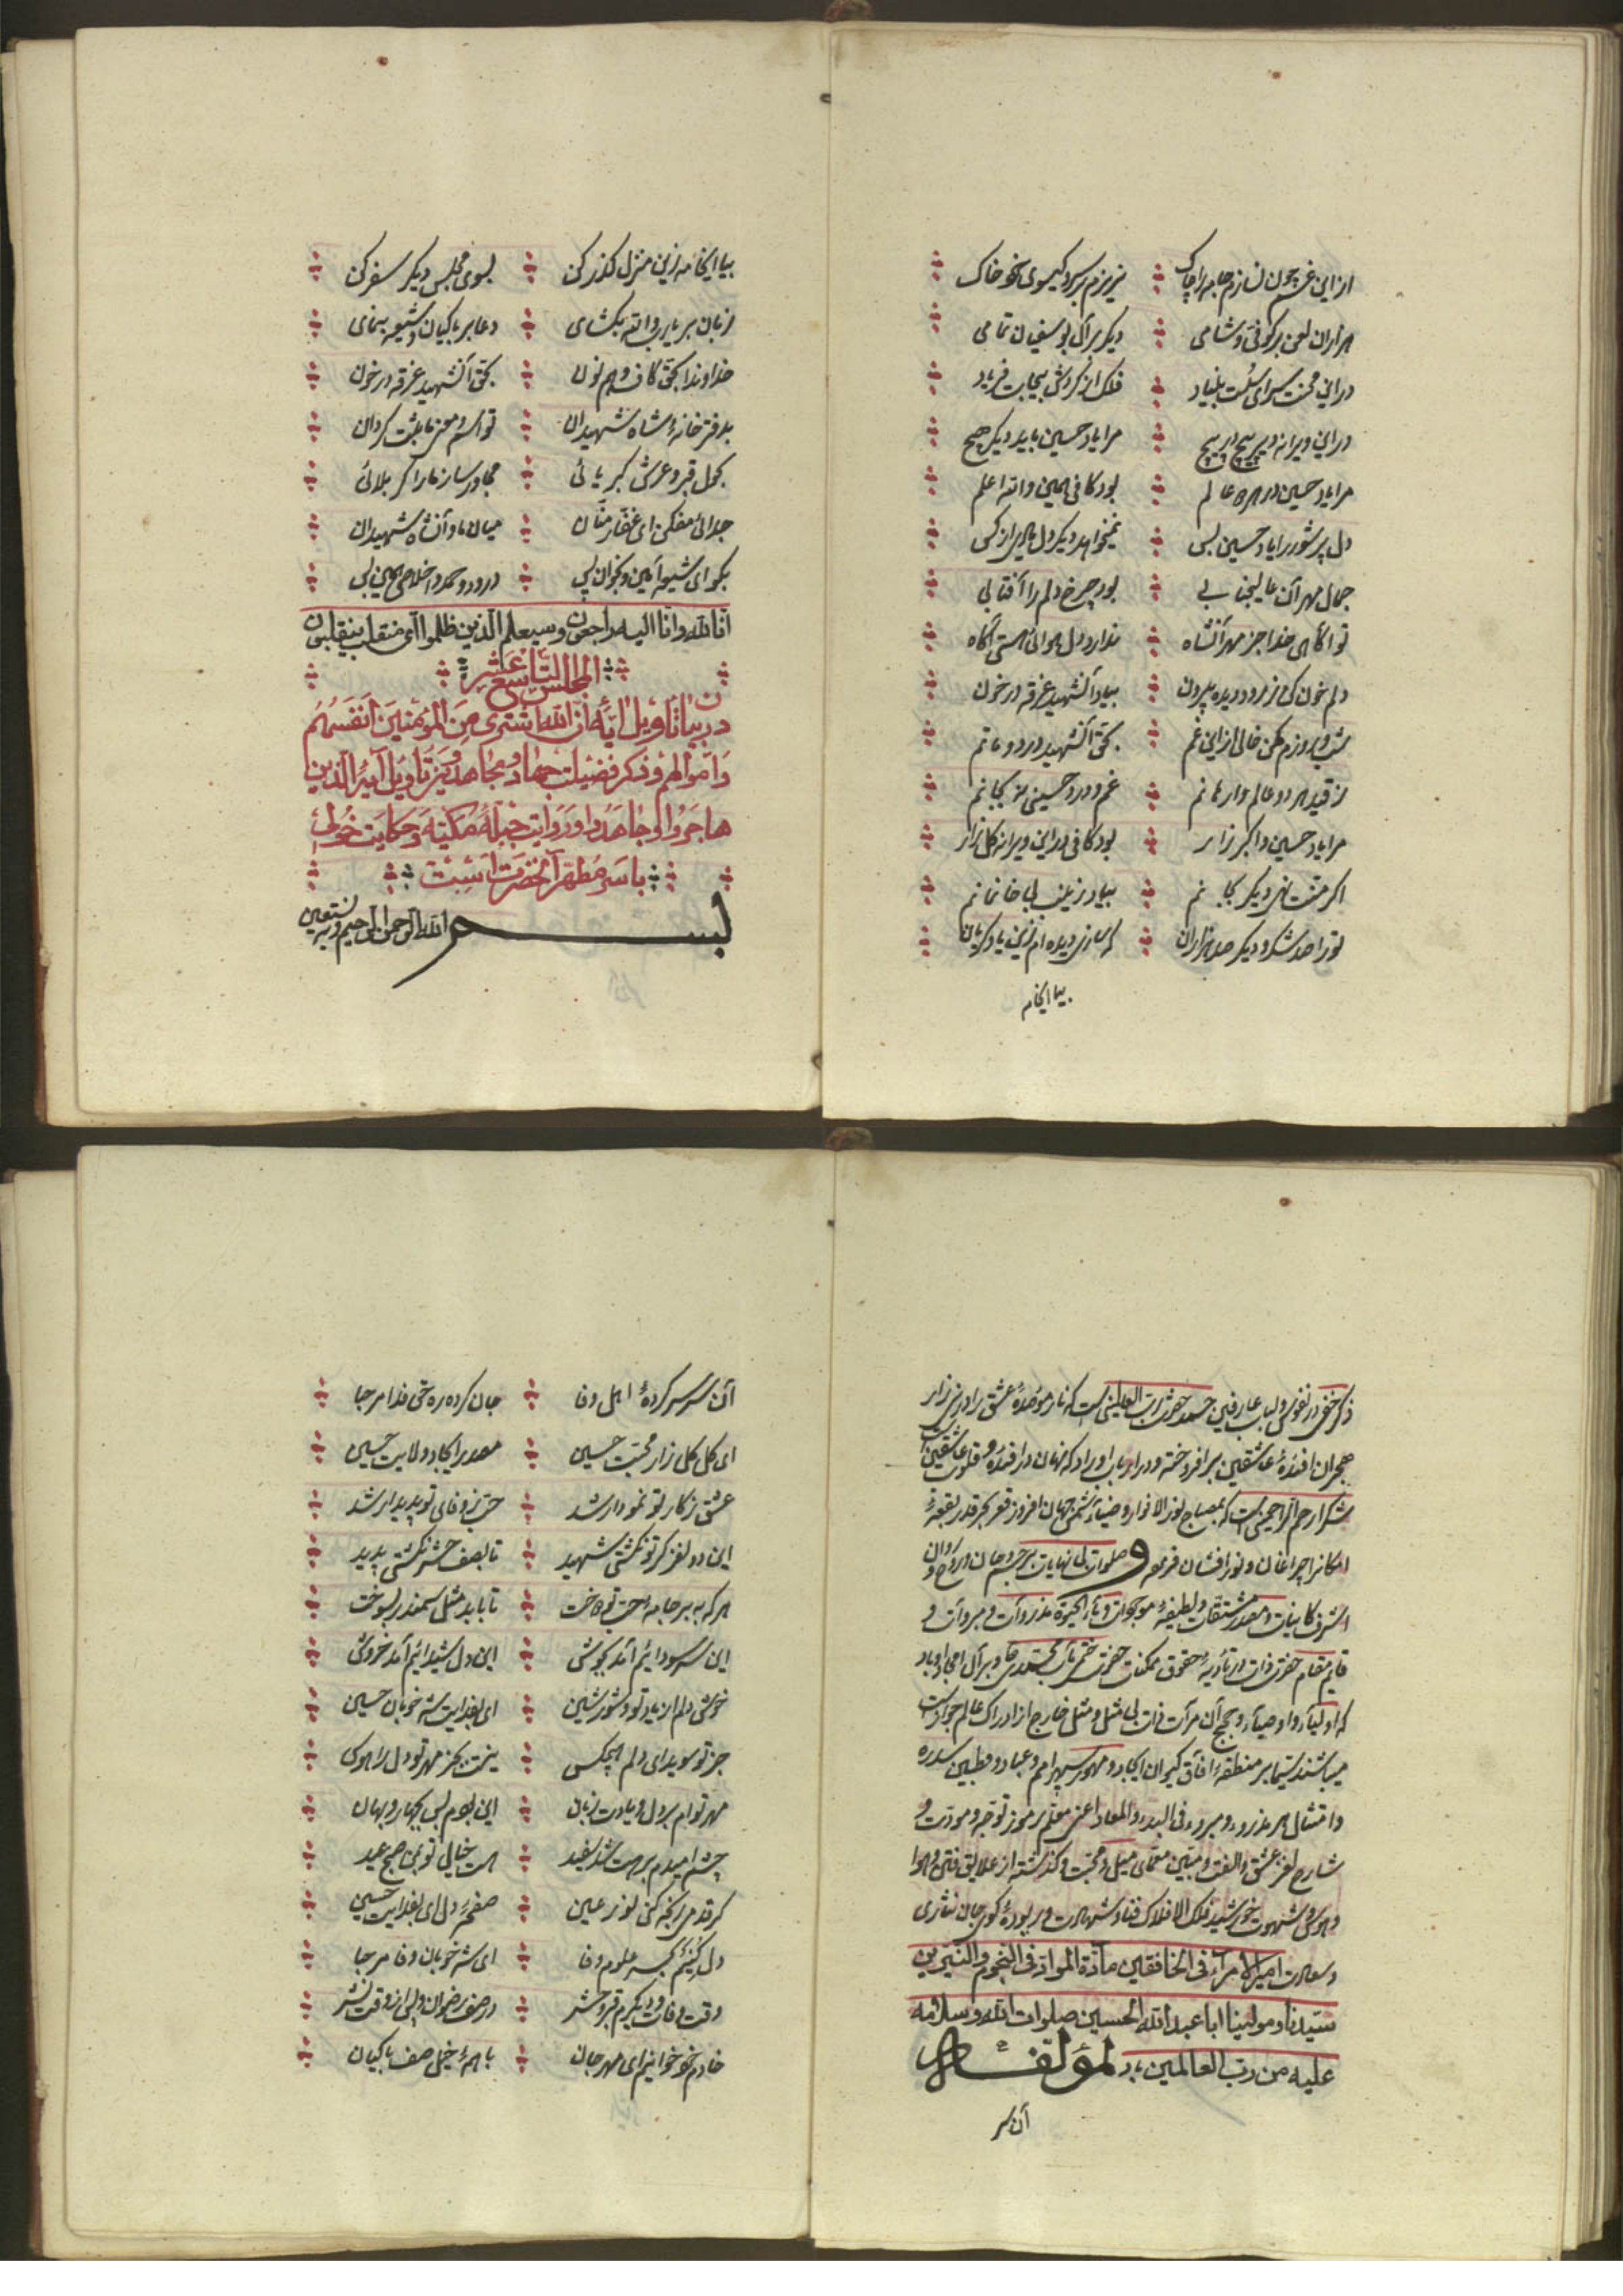 از این غم چون نسازم جامه را چاک نریزم بر سر و کیسوی خو خاک
هزاران لعن بر کوفی و شامی دیکر بر آل بوسفیان تمامی
در این محنت سرای سست بنیاد فلک از کردش بیجات فریاد
در این ویرانه دیر هیچ در هیچ مرا یاد حسین باید دیکر هیچ
مرا یاد حسین در هر دو عالم بود کافی همین والله اعلم
دل پر شور را یاد حسین بس نمیخواهد دیکر دل از کس
جمال مهر آن عالیجنابی بود چرخ دلم را آفتابی
تو آکاهی خدا جز مهر آنشاه ندارد دل هوائی هست آکاه
دلم خون کن ز مرود دیده بیرون بیاد آنشهید غرقه در خون
شب و روزم مکن خالی از این غم بحق آنشهید درد و ماتم
ز قید هر دو عالم وارهانم غم و درد حسینی نه بجانم
مرا یاد حسین و اکبر زار بود کافی در این ویرانه کلزار
اکر منت نهی دیکر بجانم بیاد زینب بی خانمانم
تو را صد شکر و دیکر صد هزاران که سازی دیده ام زین یاد کریان
بیا ایخامه
بیا ایخامه زین منزل کذر کن بسوی مجلس دیکر سفر کن
زبان بر یارب والله بکشای دعا بر پاکیان و شیعه بنمای
خداوندا بحق کاف و هم نون بحق آنشهید غرقه در خون
بدفتر خانهٔ شاه شهیدان تو اسم محزنا ثبت کردان
بحمل قبر و عرش کبریائی مجاور ساز ما را کربلائی
جدائی مفکن ای غفار منان میان ما و آنشاه شهیدان
بکو ای شیعه آمین و بخوان بس درود و حمد و اخلاص همین بس
انا لله وانا الیه راجعون وسیعلم الذین ظلموا ای منقلب ینقلبون
المجلس التاسع عشر
در بیان تاویل ایّه ان الله اشتری من المؤمنین انفسهم
واموالهم و ذکر فضیلت جهاد و مجاهد و نیز تاویل آیهٔ الذین
هاجروا وجاهدوا و روایت جباله مکیّه و حکایت خولی
با سر مطهر آنحضرت است
بسم الله الرحمن الرحیم وبه نستعین
ذکر خفی در نفوس و لباب عارفین حمد حضرت رب العالمین است که نار موقدهٔ عشق را در نیزار
هجران افئدهٔ عاشقین بر افروخته و در
شکر ارحم الراحمین است که بمصباح نور الانوار و ضیاء شمس جهان افروز قعر بحر قدر بقعهٔ
امکانرا چراغان و نور افشان فرمود و صلوات بی نهایات بر جسم و جان و روح و روان
اشرف کاینات و مصدر مشتقات و لطیفهٔ موجودات و ماء الحیوة مذروآت و مبروآت و
قایم مقام حضرت ذات در تأدیهٔ حقوق ممکنات حضرت ختمی مآب محمدی و بر آل امجاد او باد
که اولیاء و اوصیاء و حجج آن مرآت ذات بی مثل و مثل خارج از ادراک عالم جواز است
میباشند سیما بر منطقهٔ آفاق کیوان ایجاد و مهور سپهر امم و عباد و قطبین سدره
وامتثال هر مذروء و مبروء فی البدء والمعاد اعنی معلم رموز توجه و مودت و
شارح لغز عشق و الفت و مبین معمای میل و محبت و کذشته از علایق فتن و هوا
و هوس و شهوت خورشید فلک الافلاک فنا و شهادت و بربودهٔ کوی جان نثاری
و سعادت امیر الامراء فی الخافقین مادّة المواد فی النجوم والنیرین
سیدنا و مولینا ابا عبدالله الحسین صلوات الله وسلامه
علیه من رب العالمین باد لمؤلفه
آن سر
آن سر سرکردهٔ اهل وفا جان کرده ره حق فدا مرحبا
ای کل کلزار محبت حسین مصدر ایجاد ولایت حسین
عشق ز کار تو نمودار شد حق ز وفای تو پدیدار شد
این دو لغز کر تو نکشتی شهید تا بصف حشر نکشتی پدید
هر که به بر جامهٔ حب تو دوخت تا بابد مثل سمندر بسوخت
این سر سودائیم آمد بجوش این دل شیدائیم آمد خروش
خوش دلم از یاد تو و شور شین ای بفدایت شه خوبان حسین
جز تو سویدای دلم هیچکس نیست بجز مهر تو دل را هوس
مهر توام بر دل و یادت زبان این بودم بس بجهار و نهان
چشم امیدم برهت شد سفید هست خیال تو بمن صبح عید
کر قدمی رنجه کنی نور عین صفحهٔ دل ای بفدایت حسین
دل کنیم مملو وفا ای شه خوبان وفا مرحبا
وقت وفات و دیکرم قبر و حشر در صف رضوان و پس از وقت نشر
خادم خود خوانیم ای مهر جان با همهٔ خیل صف پاکیان